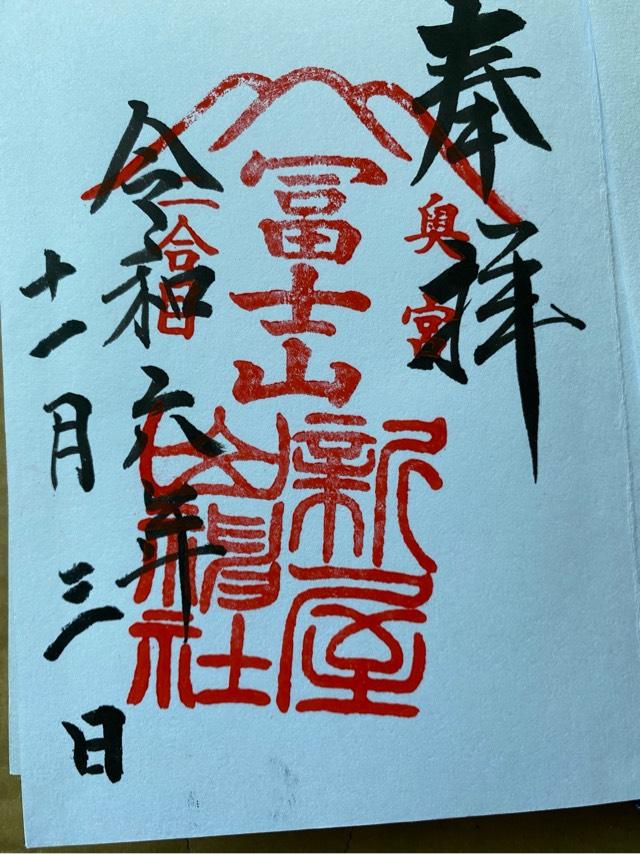 奉拝
奥宮
冨士山
新屋
山神社
一合目
令和六年
十一月三日